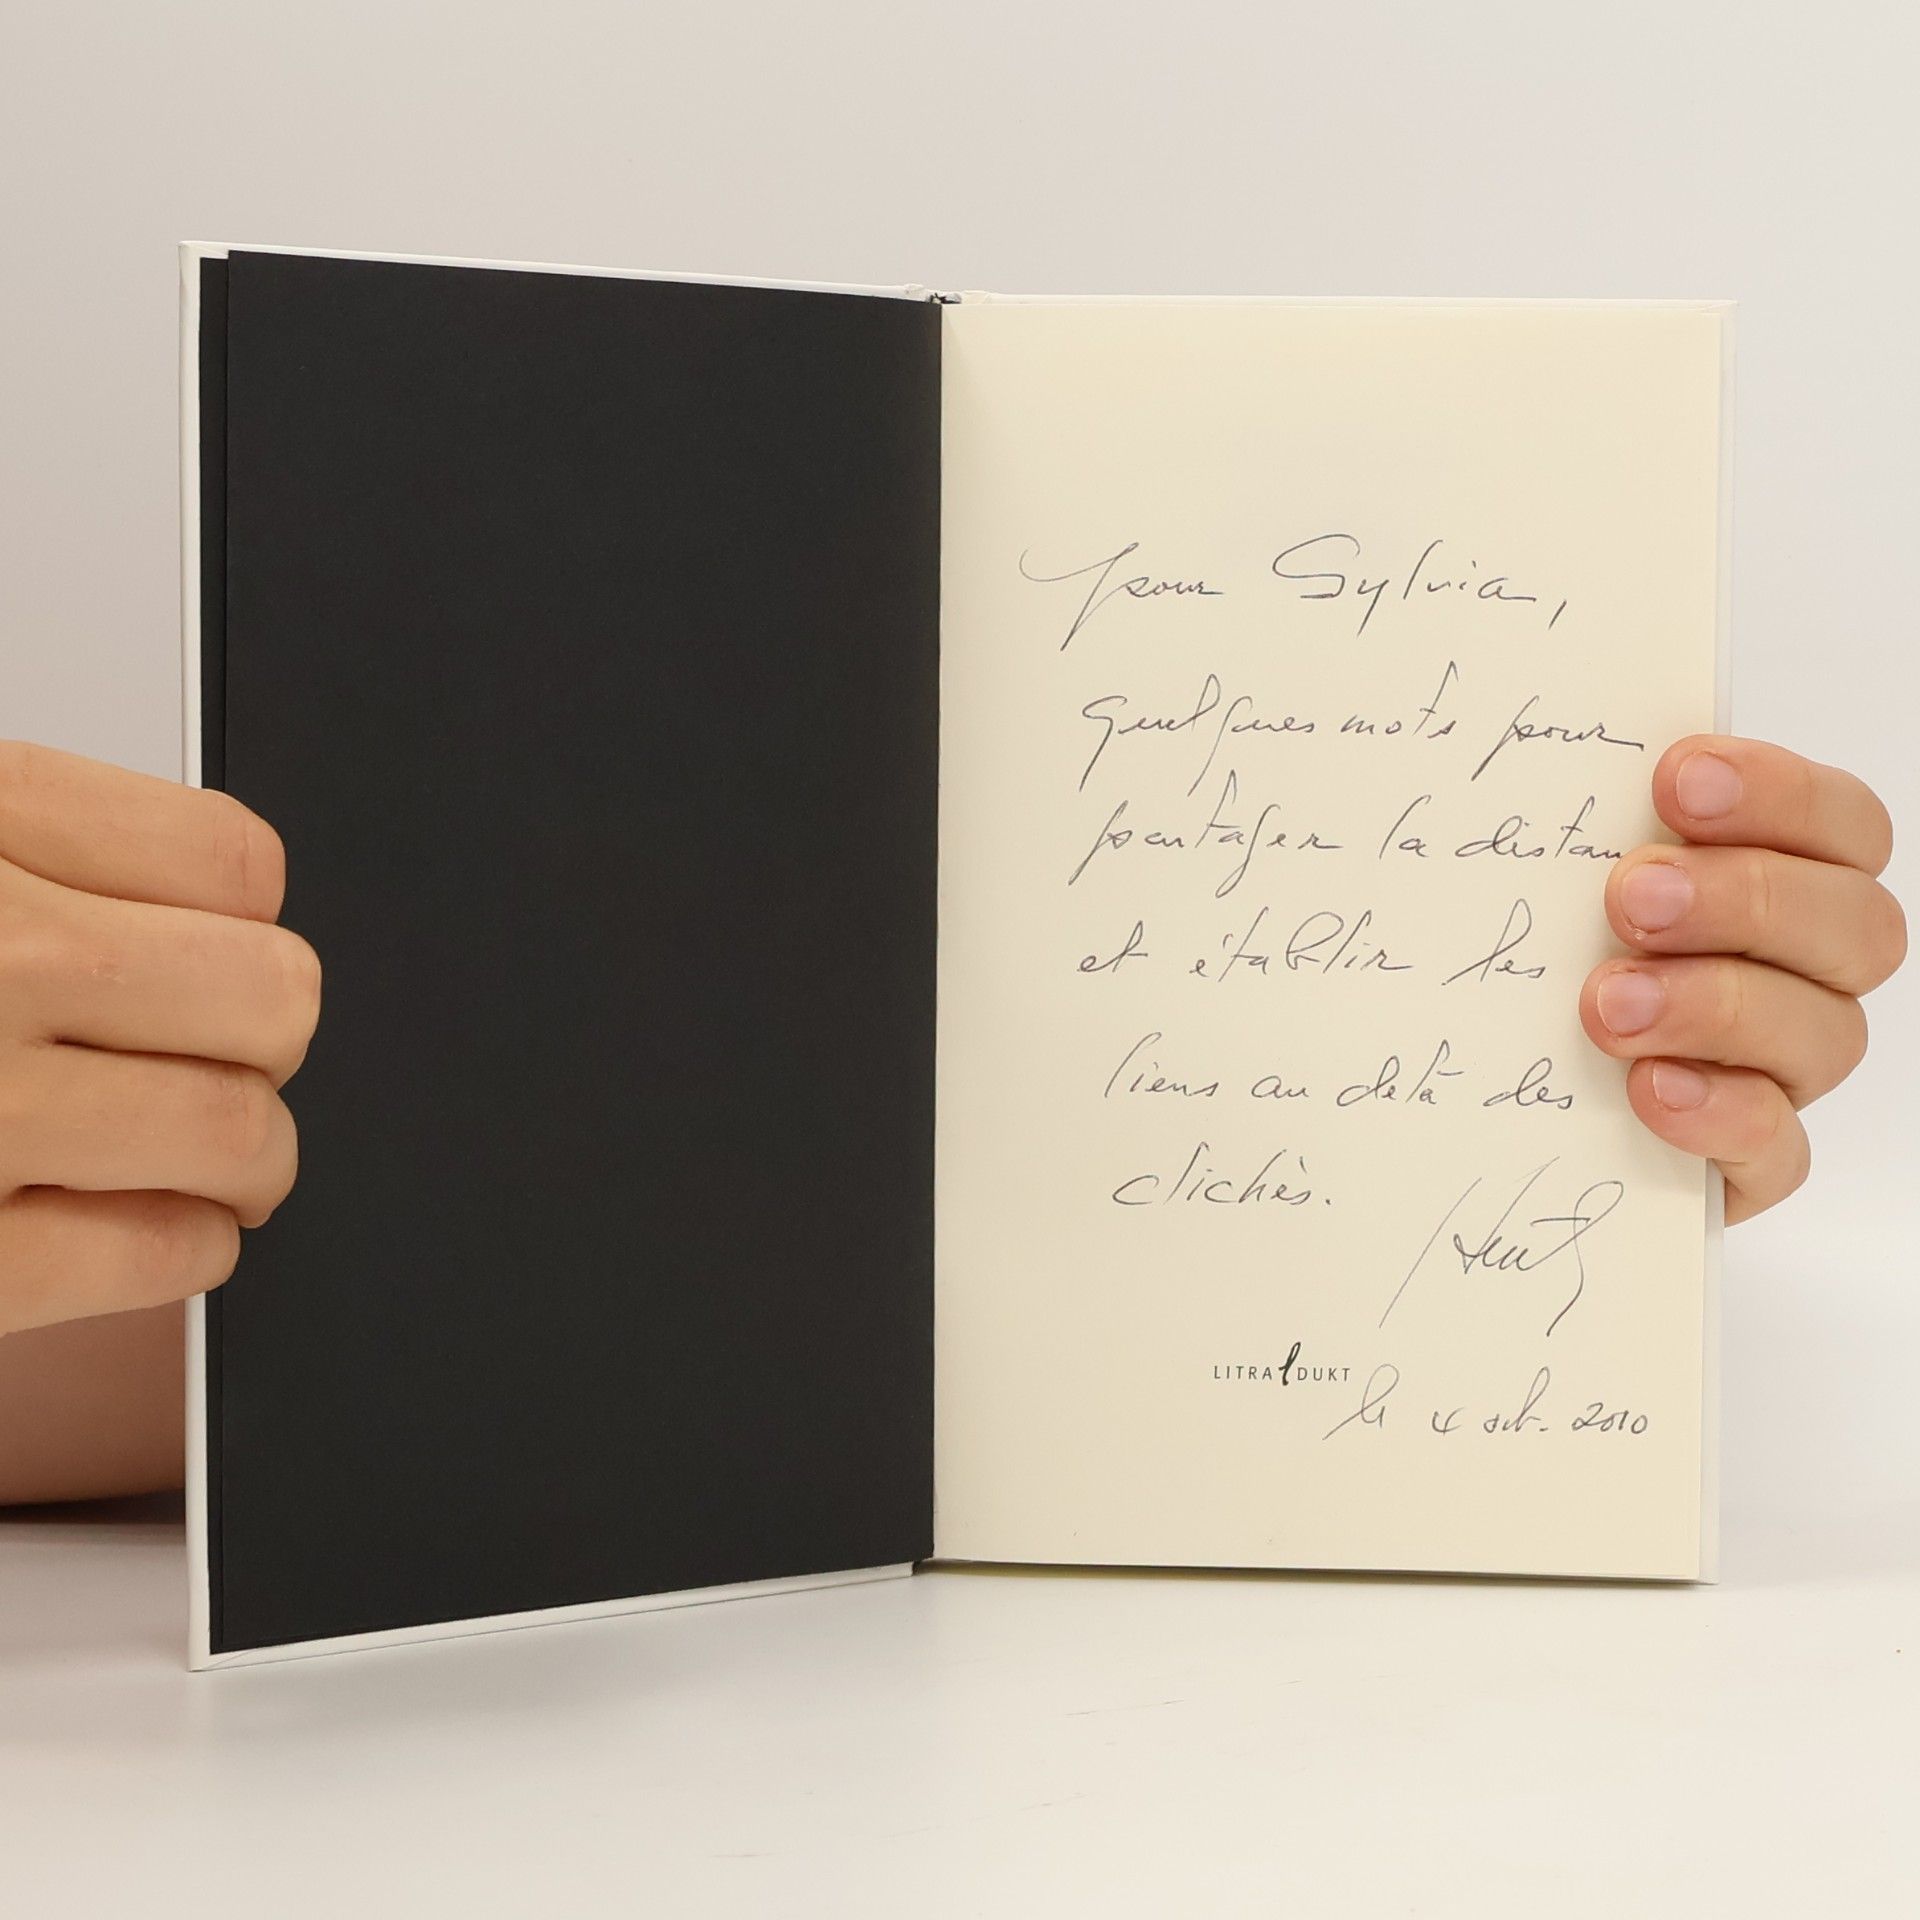 pour Sylvia,
quelques mots pour
partager la distan
et établir les
liens au delà des
clichés.
LITRADUKT
le 4 oct. 2010